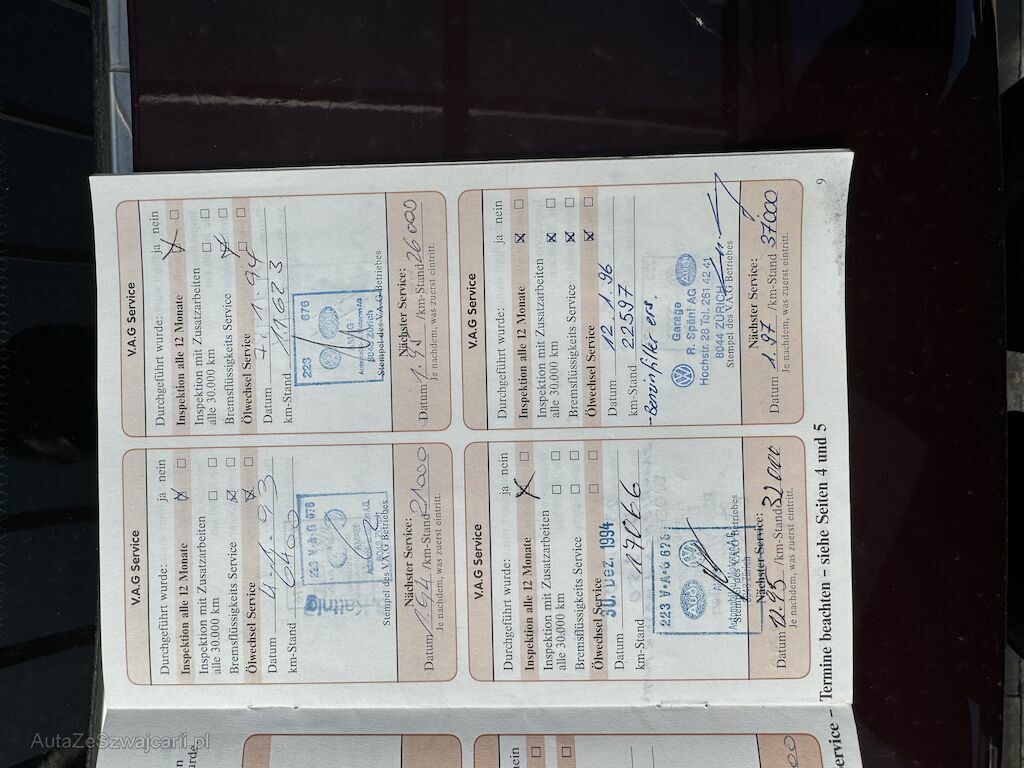 V.A.G Service
Durchgeführt wurde: ja nein
Inspektion alle 12 Monate
Inspektion mit Zusatzarbeiten
alle 30.000 km
Bremsflüssigkeits Service
Ölwechsel Service
Datum 4. 1. 93
km-Stand 6400
223 V·A·G 676
Stempel des V.A.G Betriebes
Nächster Service:
Datum 1.94 /km-Stand 21000
Je nachdem, was zuerst eintritt.
V.A.G Service
Durchgeführt wurde: ja nein
Inspektion alle 12 Monate
Inspektion mit Zusatzarbeiten
alle 30.000 km
Bremsflüssigkeits Service
Ölwechsel Service
Datum 7. 1. 94
km-Stand 11623
223 676
8049 Zürich
Stempel des V.A.G Betriebes
Nächster Service:
Datum 1.95 /km-Stand 26000
Je nachdem, was zuerst eintritt.
V.A.G Service
Durchgeführt wurde: ja nein
Inspektion alle 12 Monate
Inspektion mit Zusatzarbeiten
alle 30.000 km
Bremsflüssigkeits Service
Ölwechsel Service
Datum 30. Dez. 1994
km-Stand 17066
223 V·A·G 676
Stempel des V.A.G Betriebes
Nächster Service:
Datum 12.95 /km-Stand 32000
Je nachdem, was zuerst eintritt.
V.A.G Service
Durchgeführt wurde: ja nein
Inspektion alle 12 Monate
Inspektion mit Zusatzarbeiten
alle 30.000 km
Bremsflüssigkeits Service
Ölwechsel Service
Datum 12. 1. 96
km-Stand 22597
- Benzinfilter ers.
Garage
R. Späni AG
Hochstr. 28 Tel. 261 42 41
8044 ZÜRICH
Stempel des V.A.G Betriebes
Nächster Service:
Datum 1.97 /km-Stand 37000
Je nachdem, was zuerst eintritt.
ervice – Termine beachten – siehe Seiten 4 und 5
9
AutaZeSzwajcarii.pl